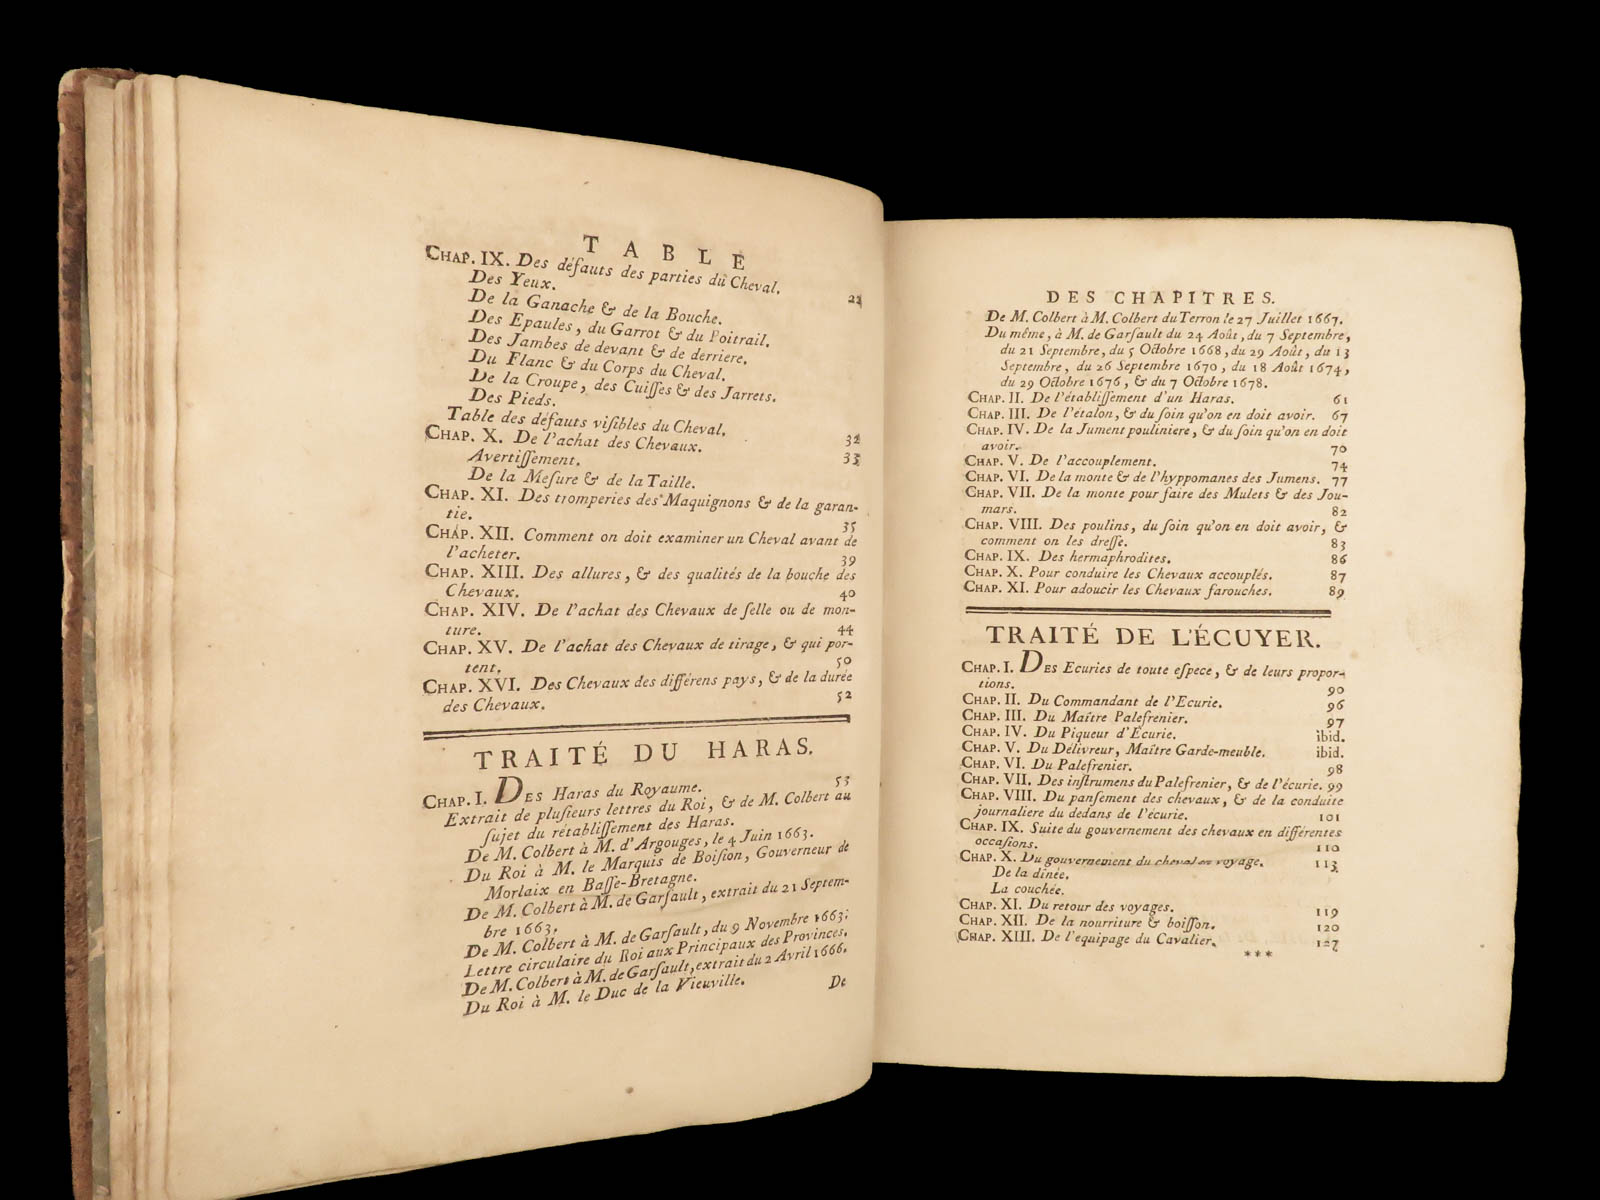 TABLE
CHAP. IX. Des défauts des parties du Cheval. 22
Des Yeux.
De la Ganache & de la Bouche.
Des Epaules, du Garrot & du Poitrail.
Des Jambes de devant & de derriere.
Du Flanc & du Corps du Cheval.
De la Croupe, des Cuiſſes & des Jarrets.
Des Pieds.
Table des défauts viſibles du Cheval. 32
CHAP. X. De l'achat des Chevaux. 33
Avertiſſement.
De la Meſure & de la Taille.
CHAP. XI. Des tromperies des Maquignons & de la garan-
tie. 35
CHAP. XII. Comment on doit examiner un Cheval avant de
l'acheter. 39
CHAP. XIII. Des allures, & des qualités de la bouche des
Chevaux. 40
CHAP. XIV. De l'achat des Chevaux de ſelle ou de mon-
ture. 44
CHAP. XV. De l'achat des Chevaux de tirage, & qui por-
tent. 50
CHAP. XVI. Des Chevaux des différens pays, & de la durée
des Chevaux. 52
TRAITÉ DU HARAS.
CHAP. I. DES Haras du Royaume. 53
Extrait de pluſieurs lettres du Roi, & de M. Colbert au
ſujet du rétabliſſement des Haras.
De M. Colbert à M. d'Argouges, le 4 Juin 1663.
Du Roi à M. le Marquis de Boiſion, Gouverneur de
Morlaix en Baſſe-Bretagne.
De M. Colbert à M. de Garſault, extrait du 21 Septem-
bre 1663.
De M. Colbert à M. de Garſault, du 9 Novembre 1663.
Lettre circulaire du Roi aux Principaux des Provinces.
De M. Colbert à M. de Garſault, extrait du 2 Avril 1666.
Du Roi à M. le Duc de la Vieuville.
De
DES CHAPITRES.
De M. Colbert à M. Colbert du Terron le 27 Juillet 1667.
Du même, à M. de Garſault du 24 Août, du 7 Septembre,
du 21 Septembre, du 5 Octobre 1668, du 29 Août, du 13
Septembre, du 26 Septembre 1670, du 18 Août 1674,
du 29 Octobre 1676, & du 7 Octobre 1678.
CHAP. II. De l'établiſſement d'un Haras. 61
CHAP. III. De l'étalon, & du ſoin qu'on en doit avoir. 67
CHAP. IV. De la Jument pouliniere, & du ſoin qu'on en doit
avoir. 70
CHAP. V. De l'accouplement. 74
CHAP. VI. De la monte & de l'hyppomanes des Jumens. 77
CHAP. VII. De la monte pour faire des Mulets & des Jou-
mars. 82
CHAP. VIII. Des poulins, du ſoin qu'on en doit avoir, &
comment on les dreſſe. 83
CHAP. IX. Des hermaphrodites. 86
CHAP. X. Pour conduire les Chevaux accouplés. 87
CHAP. XI. Pour adoucir les Chevaux farouches. 89
TRAITÉ DE L'ÉCUYER.
CHAP. I. DES Ecuries de toute eſpece, & de leurs propor-
tions. 90
CHAP. II. Du Commandant de l'Ecurie. 96
CHAP. III. Du Maître Palefrenier. 97
CHAP. IV. Du Piqueur d'Ecurie. ibid.
CHAP. V. Du Délivreur, Maître Garde-meuble. ibid.
CHAP. VI. Du Palefrenier. 98
CHAP. VII. Des inſtrumens du Palefrenier, & de l'écurie. 99
CHAP. VIII. Du panſement des chevaux, & de la conduite
journaliere du dedans de l'écurie. 101
CHAP. IX. Suite du gouvernement des chevaux en différentes
occaſions. 110
CHAP. X. Du gouvernement du cheval en voyage. 113
De la dinée.
La couchée.
CHAP. XI. Du retour des voyages. 119
CHAP. XII. De la nourriture & boiſſon. 120
CHAP. XIII. De l'equipage du Cavalier. 127
***